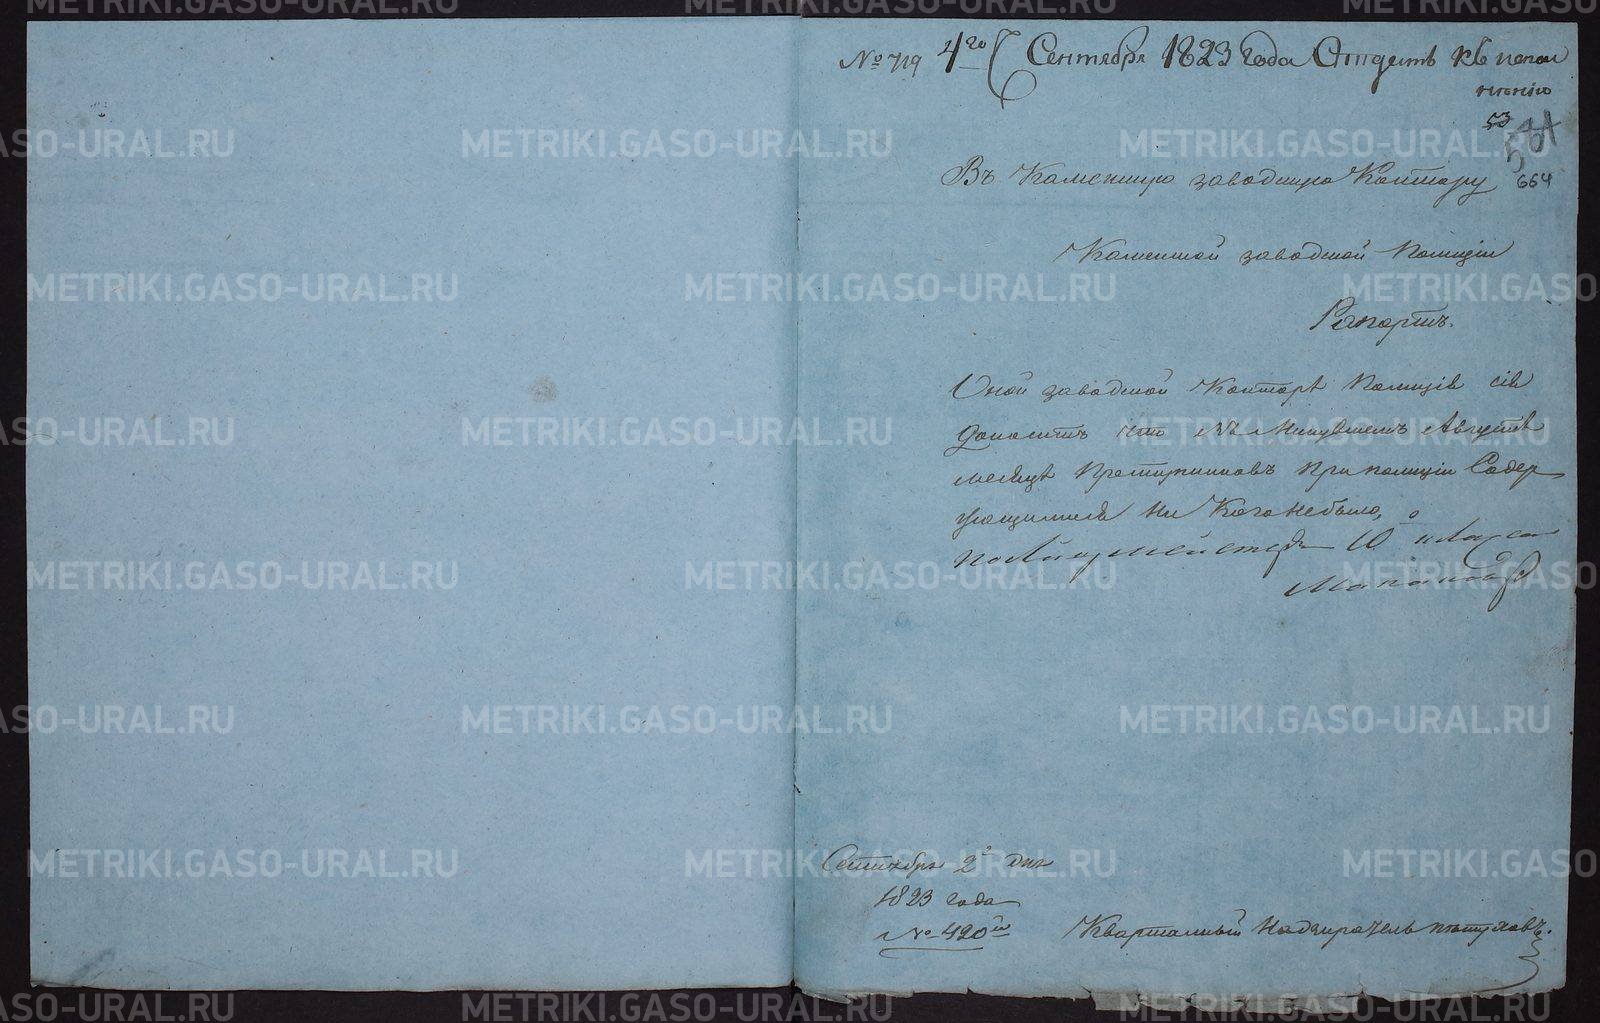 № 719 4го Сентября 1823 года Отдать къ испол
нению
53
664
Въ Каменную заводскую Контору
Каменной заводской Полиции
Рапортъ.
Оной заводской Конторѣ Полиція сім
доноситъ что въ минувшемъ Августѣ
месяцѣ Преступниковъ при полиціи Содер
жащимися ни Кого небыло,
полицмейстеръ
Сентября 2го дня
1823 года
№ 420й
Квартальный Надзиратель Петуховъ.
METRIKI.GASO-URAL.RU